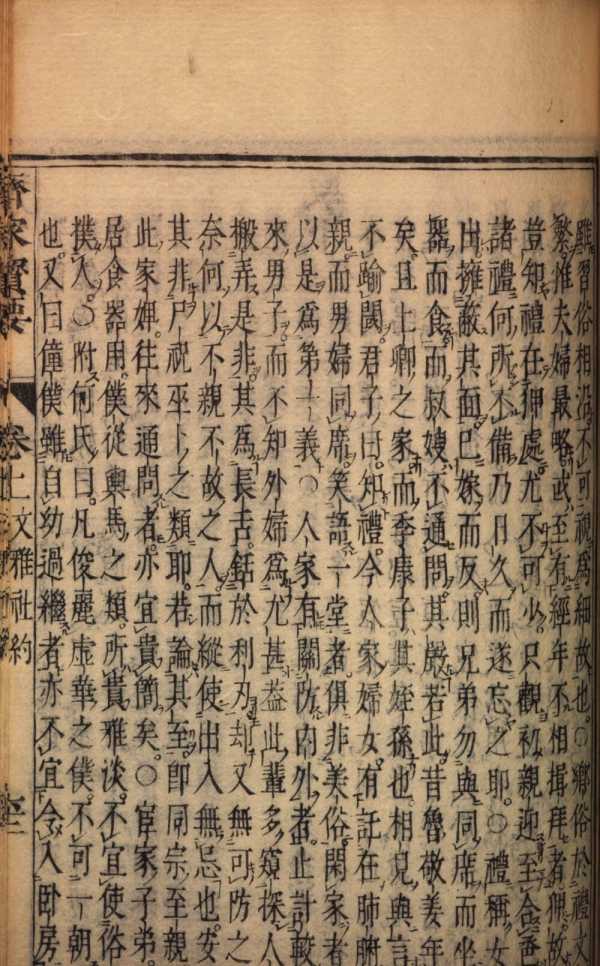 雖習俗相沿不可視爲細故也○鄉俗於禮文
繁惟夫婦最略或至有經年不相揖拜者俱故
豈知禮在狎處尤不可少只觀初親迎至合巹
諸禮何所不備乃日久而遂忘之耶○禮稱女
出擁蔽其面已嫁而反則兄弟勿與同席而坐
器而食而叔嫂不通問其嚴若此昔魯敬姜年
矣且上卿之家而季康子其姪孫也相見與言
不踰閾君子曰知禮今人家婦女有託在肺腑
親而男婦同席笑語一堂者俱非美俗閑家者
以是爲第一義○人家有關防內外者止計較
來男子而不知外婦爲尤甚蓋此輩多窺探人
搬弄是非其爲長舌銛於利刃却又無可防之
奈何以不親不故之人而縱使出入無忌也安
其非尸祝巫卜之類耶若論其至即同宗至親
此家婢往來通問者亦宜貴簡矣○宦家子弟
居食器用僕從輿馬之類所貴雅淡不宜使俗
撲人○附何氏曰凡俊麗虛華之僕不可一朝
也又曰僮僕雖自幼過繼者亦不宜令入臥房
齊家寶要 卷上 文雅社約